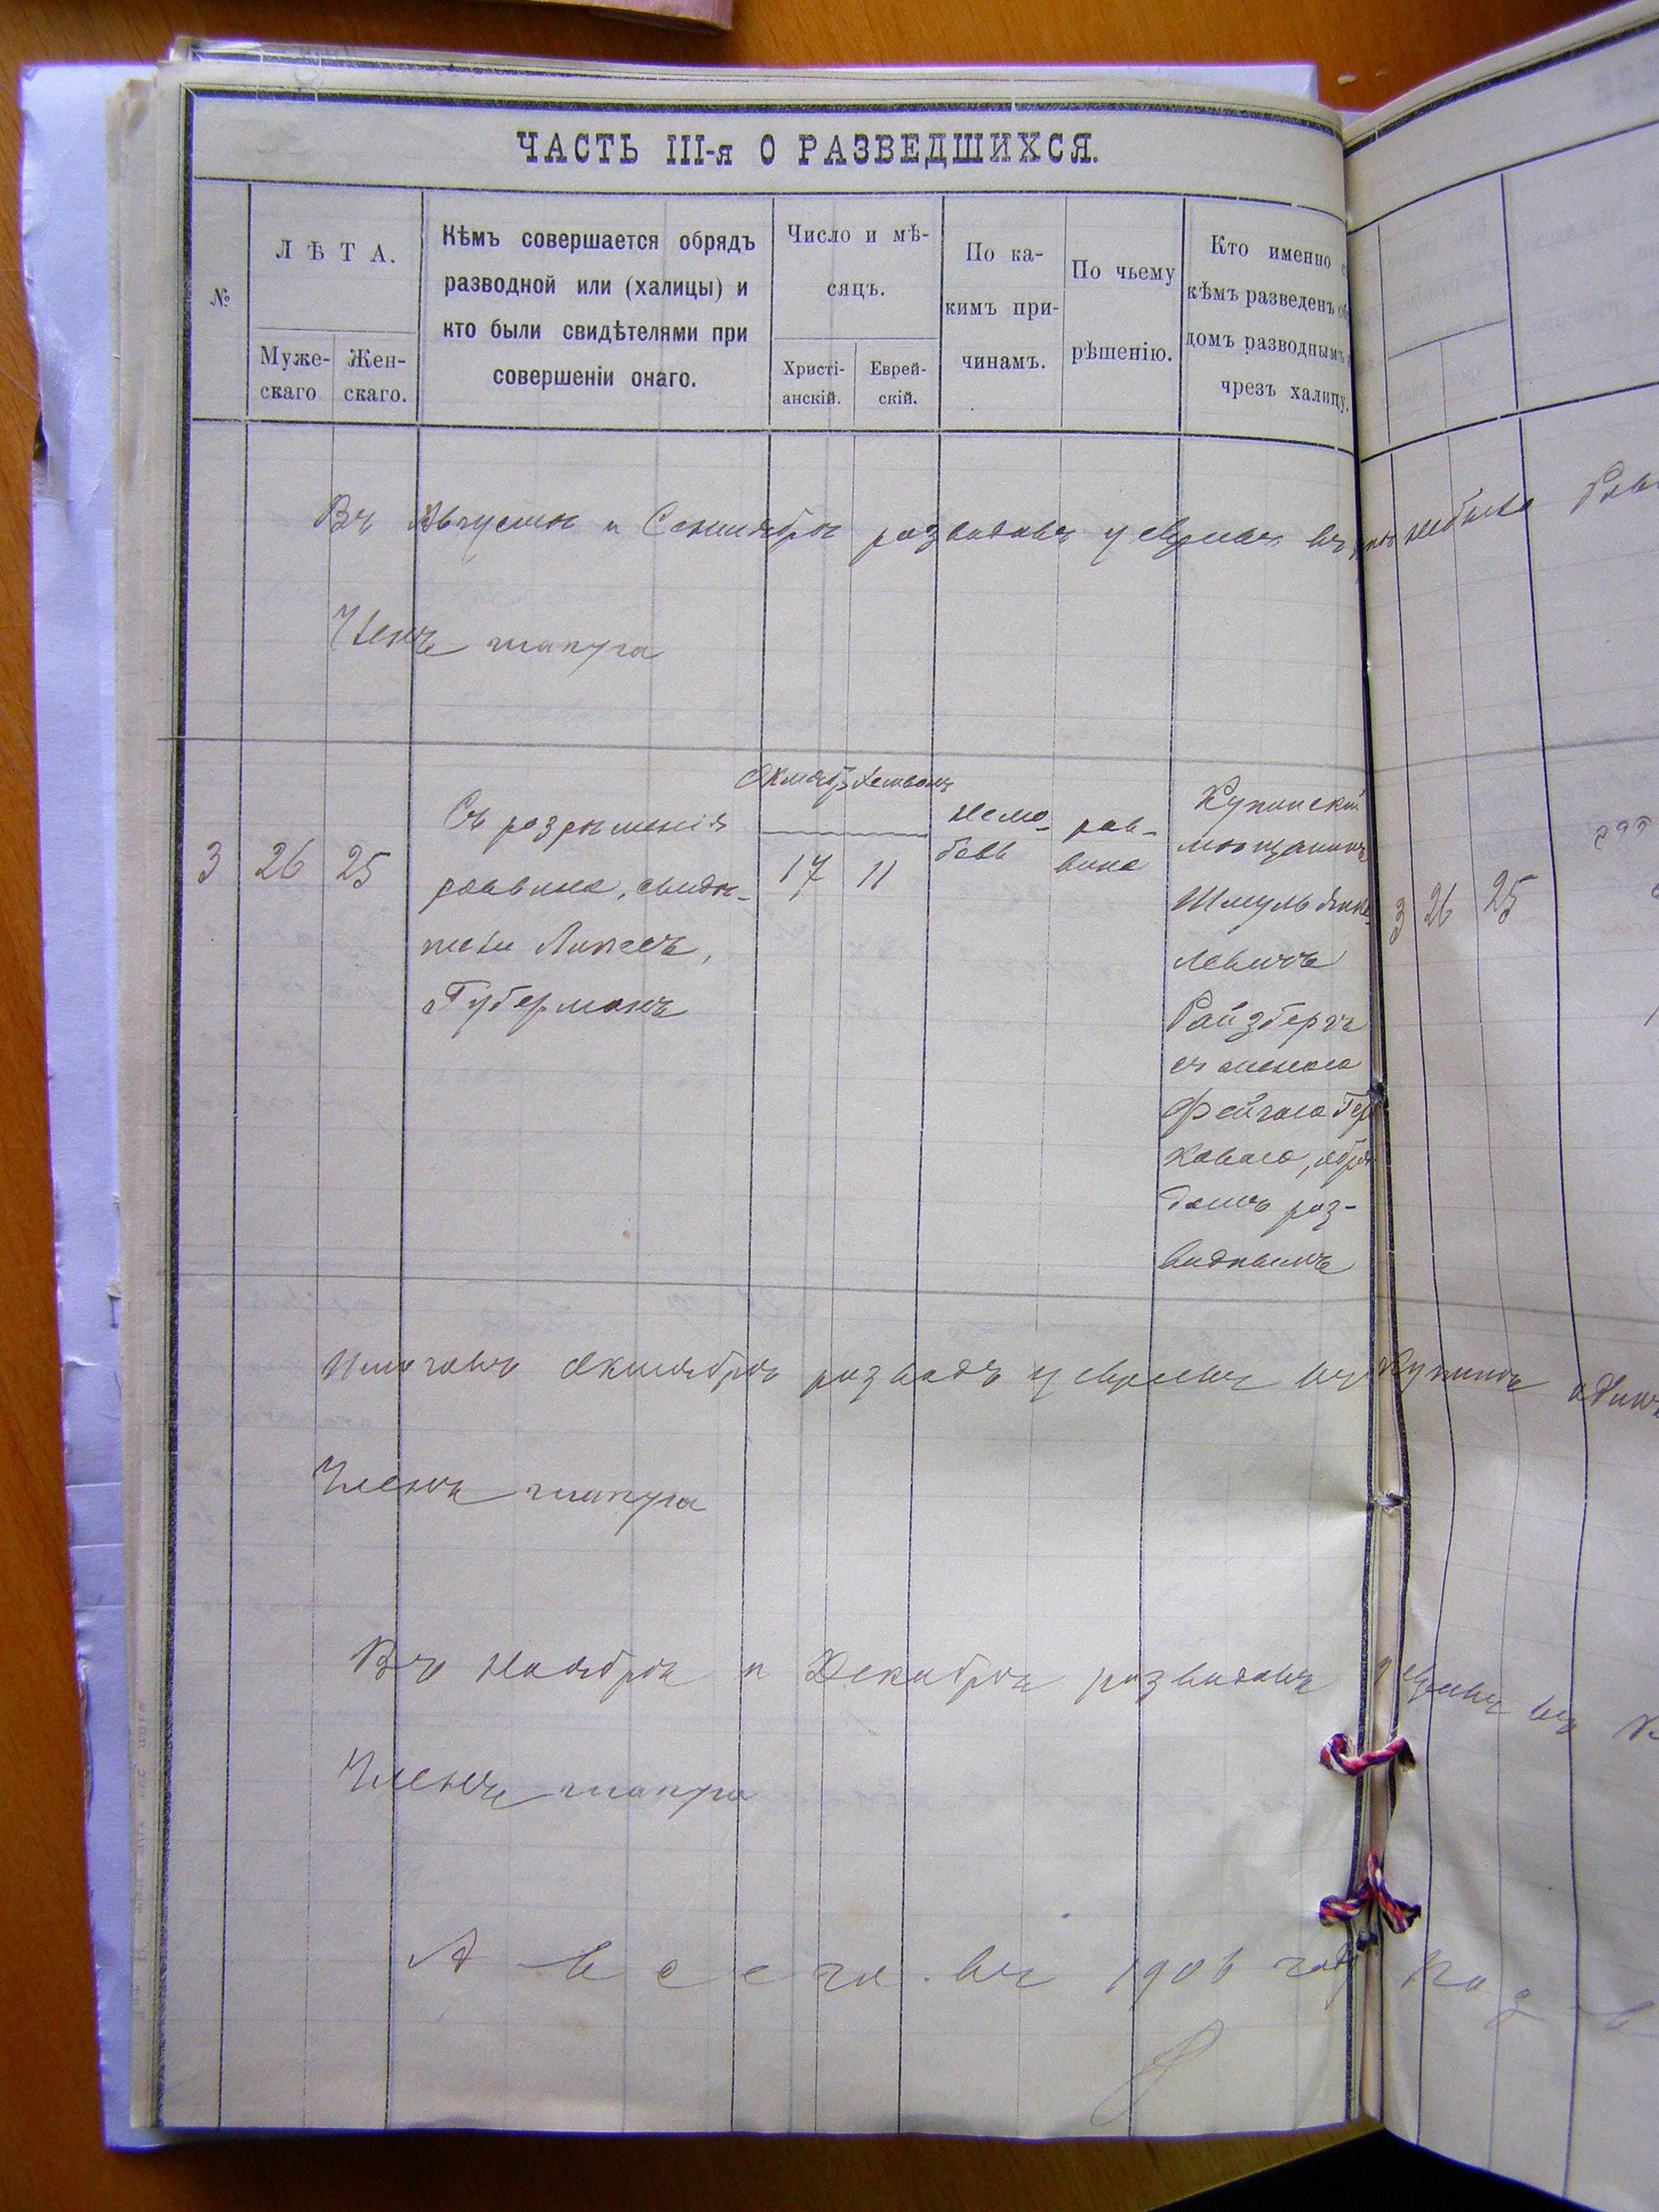 ЧАСТЬ III-я О РАЗВЕДШИХСЯ.
№
ЛѢТА.
Муже-
скаго
Жен-
скаго.
Кѣмъ совершается обрядъ
разводной или (халицы) и
кто были свидѣтелями при
совершеніи онаго.
Число и мѣ-
сяцъ.
Христі-
анскій.
Еврей-
скій.
По ка-
кимъ при-
чинамъ.
По чьему
рѣшенію.
Кто именно
кѣмъ разведенъ
домъ разводнымъ
чрезъ халицу.
Въ Августѣ и Сентябрѣ разводовъ у евреевъ въ небыло
Членъ
3
26
25
Съ разрѣшенія
раввина, свидѣ-
тели Липесъ,
Губерманъ
Октябр Хешванъ
17 11
Нелю-
бовь
рав-
вина
Купинскій
мѣщанинъ
Шмуль
левичъ
Райзбергъ
съ женою
Фейгою Гер
ковою, обря
домъ раз-
воднымъ
3 26 25
Итого въ Октябрѣ разводъ у евреевъ въ Купинѣ одинъ
Членъ
Въ Ноябрѣ и Декабрѣ разводовъ у евреевъ въ
Членъ
А всего въ 1906 году